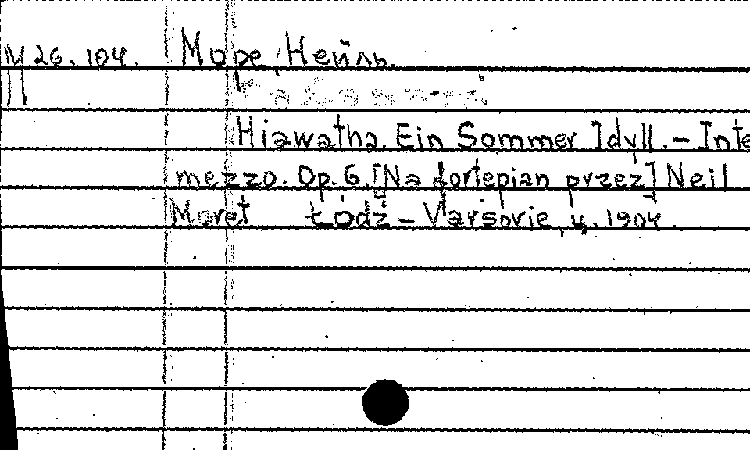 М 26.104. Море, Нейль.
Hiawatha. Ein Sommer Idyll. – Inte
mezzo. Op. 6. [Na fortepian przez] Neil
Moret Łódź – Varsovie, 4. 1904.